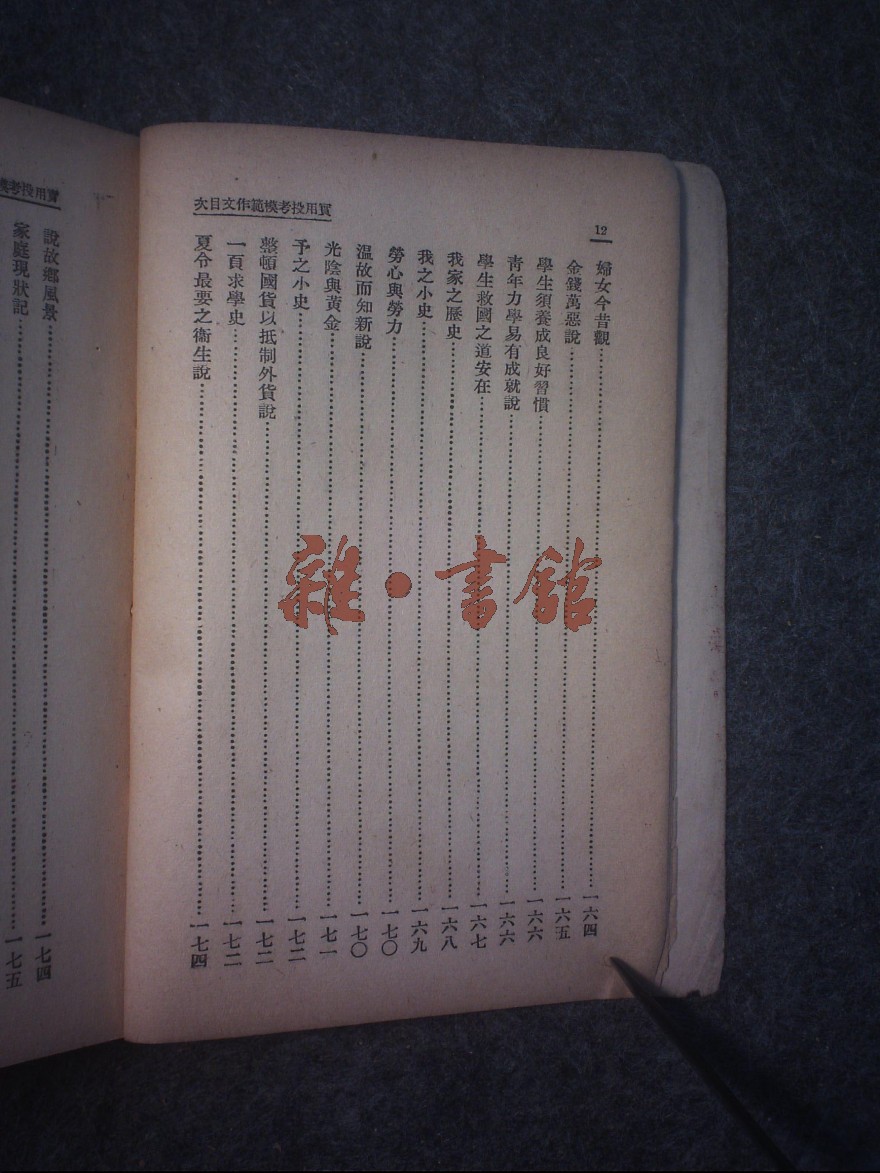 實用投考模範作文目次
12
婦女今昔觀……一六四
金錢萬惡說……一六五
學生須養成良好習慣……一六六
靑年力學易有成就說……一六六
學生救國之道安在……一六七
我家之歷史……一六八
我之小史……一六九
勞心與勞力……一七〇
溫故而知新說……一七〇
光陰與黃金……一七一
予之小史……一七二
整頓國貨以抵制外貨說……一七二
一頁求學史……一七二
夏令最要之衞生說……一七四
實用投考模
說故鄉風景……一七四
家庭現狀記……一七五
雜·書館